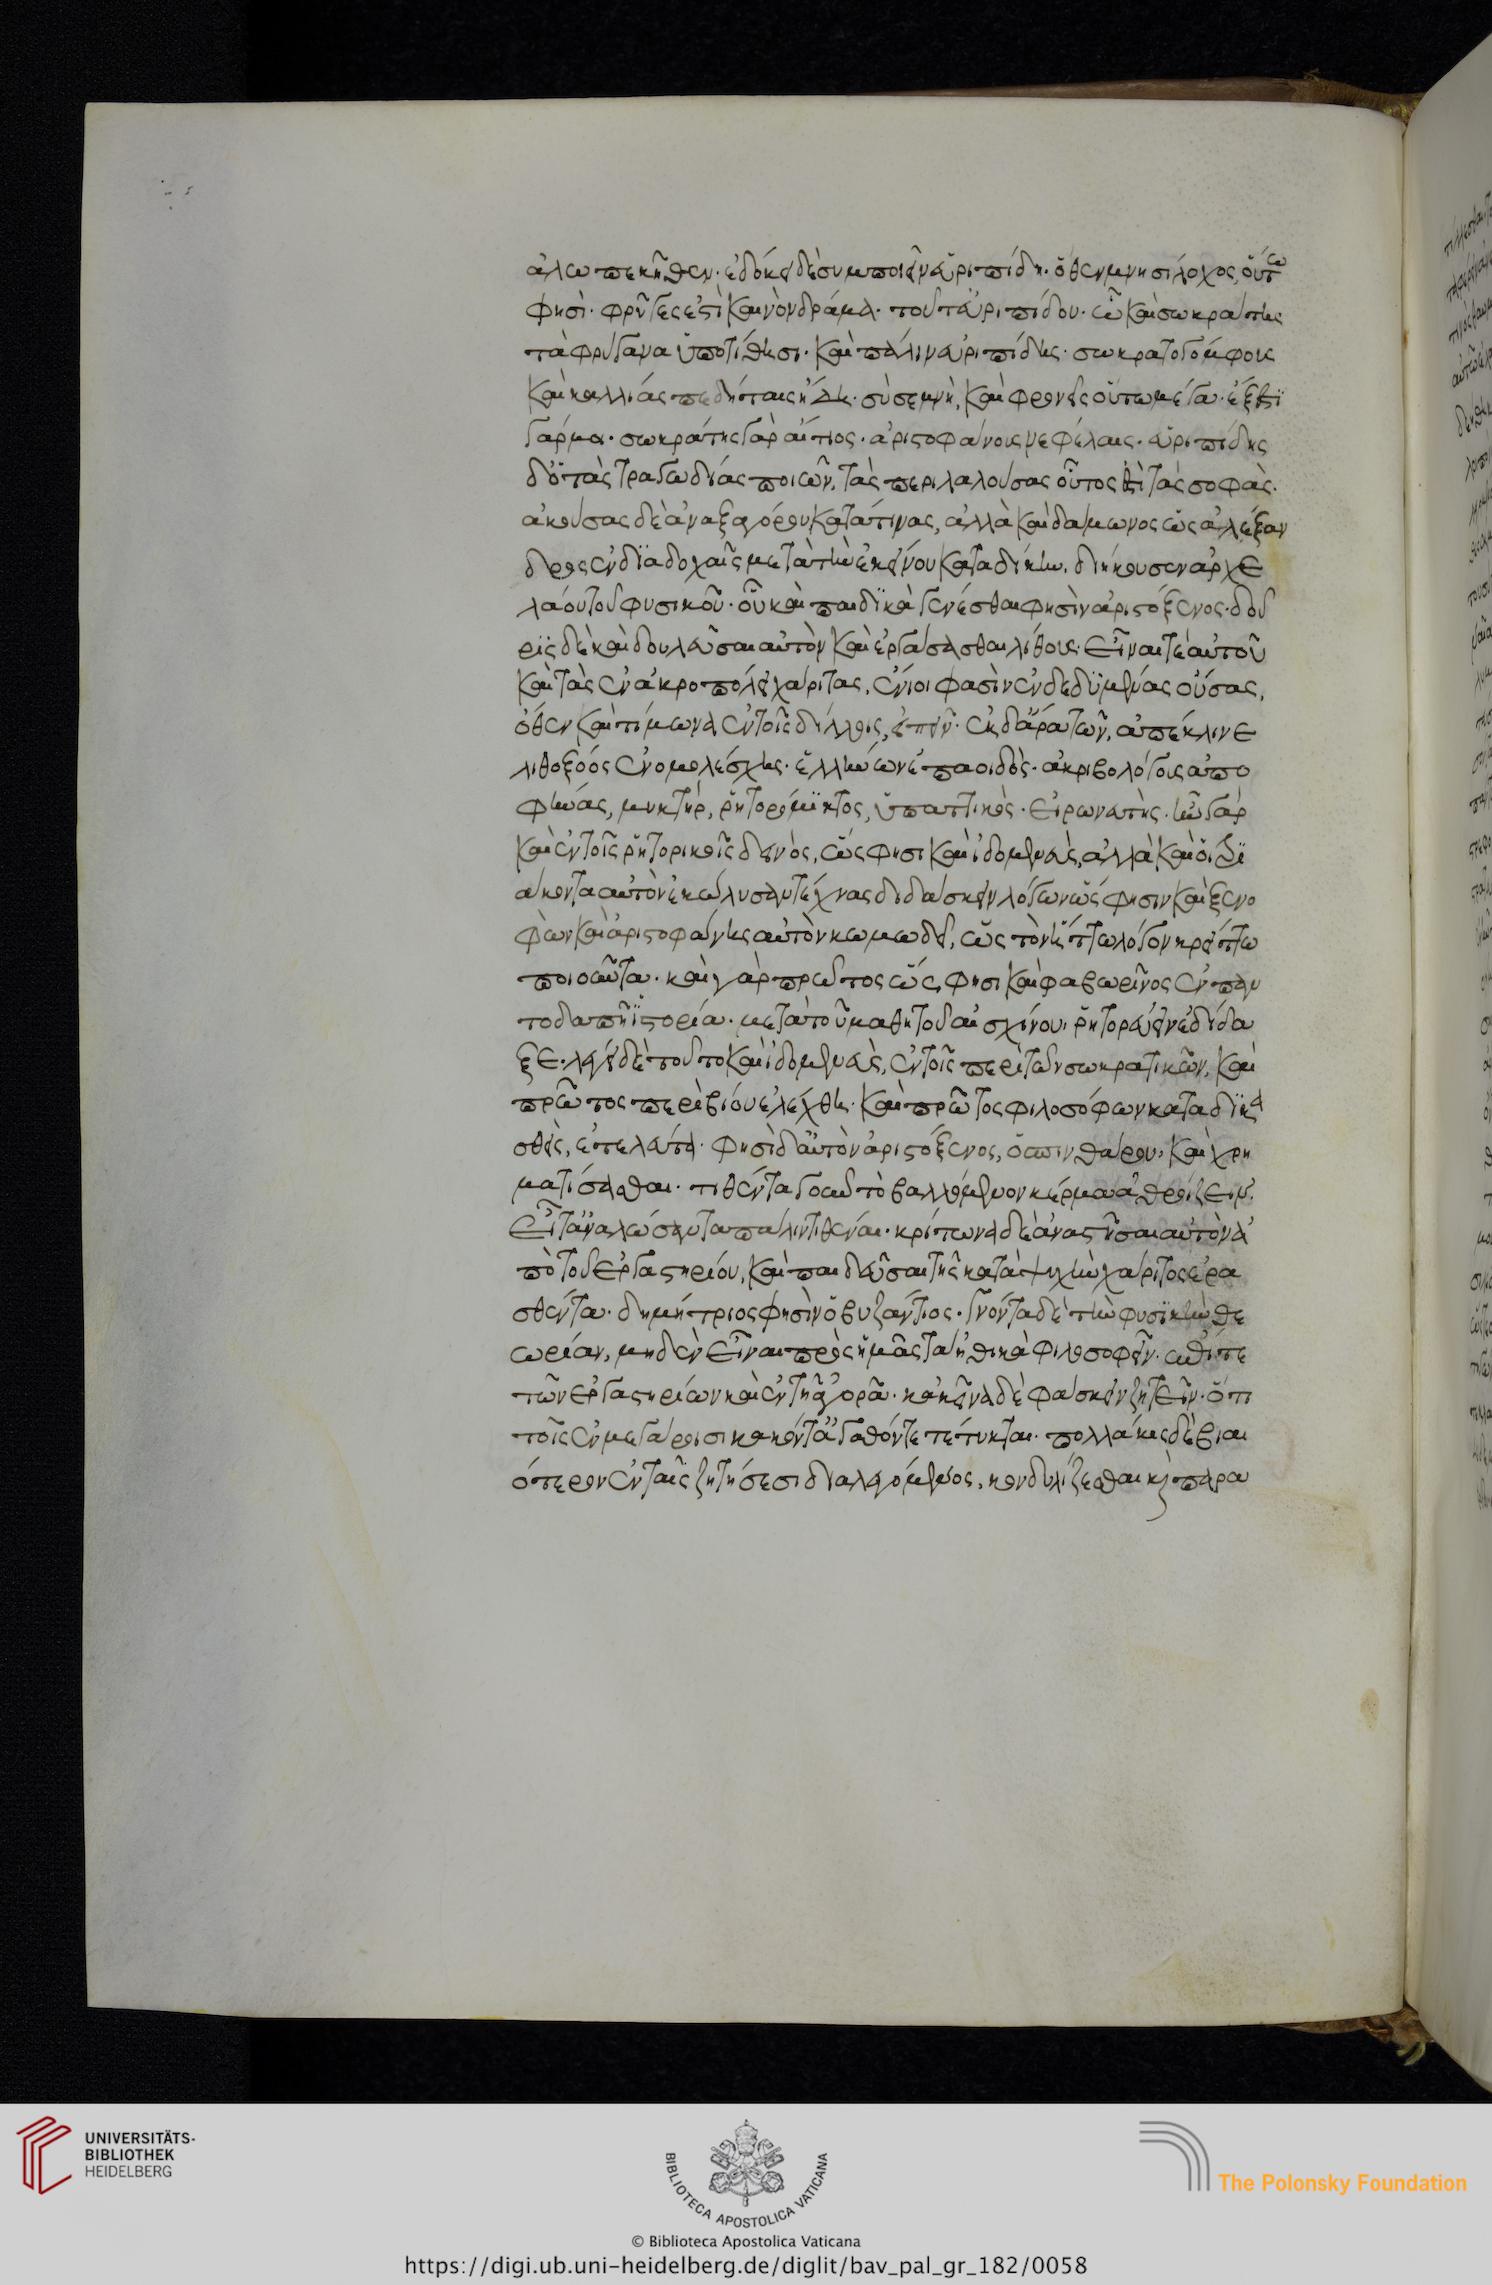 ἀλωπεκῆθεν· ἐδόκει δὲ συμποιεῖν εὐριπίδη· ὅθεν μνησίλοχος, οὕτω
φησὶ· φρῦγες ἐστὶ καινὸν δράμα· τοῦτ' εὐριπίδου· ὧ καὶ σωκράτης
τὰ φρύγανα ὑποτίθησι· καὶ πάλιν εὐριπίδης· σωκρατογόμφους
καὶ καλλίας πεδήταις ἤδη· σὺ σεμνὴ, καὶ φρονεῖς οὕτω μέγα· ἔξεστι
γάρ μοι· σωκράτης γὰρ αἴτιος· ἀριστοφάνους νεφέλαις· εὐριπίδης
δ' ὁ τὰς τραγωδίας ποιῶν, τὰς περιλαλούσας οὗτος ἐστὶ τὰς σοφάς·
ἀκούσας δὲ ἀναξαγόρου κατά τινας, ἀλλὰ καὶ δάμωνος ὡς ἀλέξαν
δρος ἐν διαδοχαῖς μετὰ τὴν ἐκείνου καταδίκην, διήκουσεν ἀρχε
λάου τοῦ φυσικοῦ· οὗ καὶ παιδικὰ γενέσθαι φησὶν ἀριστόξενος· δοῦ
ρις δὲ καὶ δουλεῦσαι αὐτὸν καὶ ἐργάσασθαι λίθους· εἶναί τε αὐτοῦ
καὶ τὰς ἐν ἀκροπόλει χάριτας, ἔνιοι φασὶν ἐνδεδυμένας οὔσας,
ὅθεν καὶ τίμωνα ἐν τοῖς σίλλοις, εἰπεῖν· ἐκ δ' ἄρα τῶν, ἀπέκλινε
λιθοξόος ἐνομολέσχης· ἑλλήνων ἐπαοιδὸς· ἀκριβολόγους ἀπο
φήνας, μυκτὴρ, ῥητορόμυκτος, ὑπαττικὸς· εἰρωνευτής· ἦν γὰρ
καὶ ἐν τοῖς ῥητορικοῖς δεινὸς, ὥς φησι καὶ ἰδομενεὺς, ἀλλὰ καὶ οἱ τρι
άκοντα αὐτὸν ἐκώλυσαν τέχνας διδάσκειν λόγων ὥς φησιν καὶ ξενο
φὼν καὶ ἀριστοφάνης αὐτὸν κωμωδεῖ, ὡς τὸν ἥττω λόγον κρείττω
ποιοῦντα· καὶ γὰρ πρῶτος ὥς, φησι καὶ φαβωρῖνος ἐν παν
τοδαπῆ ἱστορία· μετὰ τοῦ μαθητοῦ αἰσχίνου, ῥητορεύειν ἐδίδα
ξε· λέγει δὲ τοῦτο καὶ ἰδομενεὺς, ἐν τοῖς περὶ τῶν σωκρατικῶν, καὶ
πρῶτος περὶ βίου ἐλέχθη· καὶ πρῶτος φιλοσόφων καταδικα
σθεὶς, ἐτελεύτα· φησὶ δ' αὐτὸν ἀριστόξενος, ὁ σπινθάρου, καὶ χρη
ματίσασθαι· τιθέντα γοῦν τὸ βαλλόμενον κέρμα ἀθροίζειν·
εἶτ' ἀναλώσαντα πάλιν τιθέναι· κρίτωνα δὲ ἀναστῆσαι αὐτὸν ἀ
πὸ τοῦ ἐργαστηρίου, καὶ παιδεῦσαι τῆς κατὰ ψυχὴν χάριτος ἐρα
σθέντα· δημήτριος φησὶν ὁ βυζάντιος· γνόντα δὲ τὴν φυσικὴν θε
ωρίαν, μηδὲν εἶναι πρὸς ἡμᾶς τὰ ἠθικὰ φιλοσοφεῖν· ἐπί τε
τῶν ἐργαστηρίων καὶ ἐν τῆ ἀγορᾶ· κἀκεῖνα δὲ φάσκειν ζητεῖν· ὅτι
τοῖς ἐν μεγάροισι κακόντ' ἀγαθόντε τέτυκται· πολλάκις δὲ βιαι
ότερον ἐν ταῖς ζητήσεσι διαλεγόμενος, κονδυλίζεσθαι καὶ παρα
UNIVERSITÄTS-
BIBLIOTHEK
HEIDELBERG
BIBLIOTECA APOSTOLICA VATICANA
The Polonsky Foundation
© Biblioteca Apostolica Vaticana
https://digi.ub.uni-heidelberg.de/diglit/bav_pal_gr_182/0058